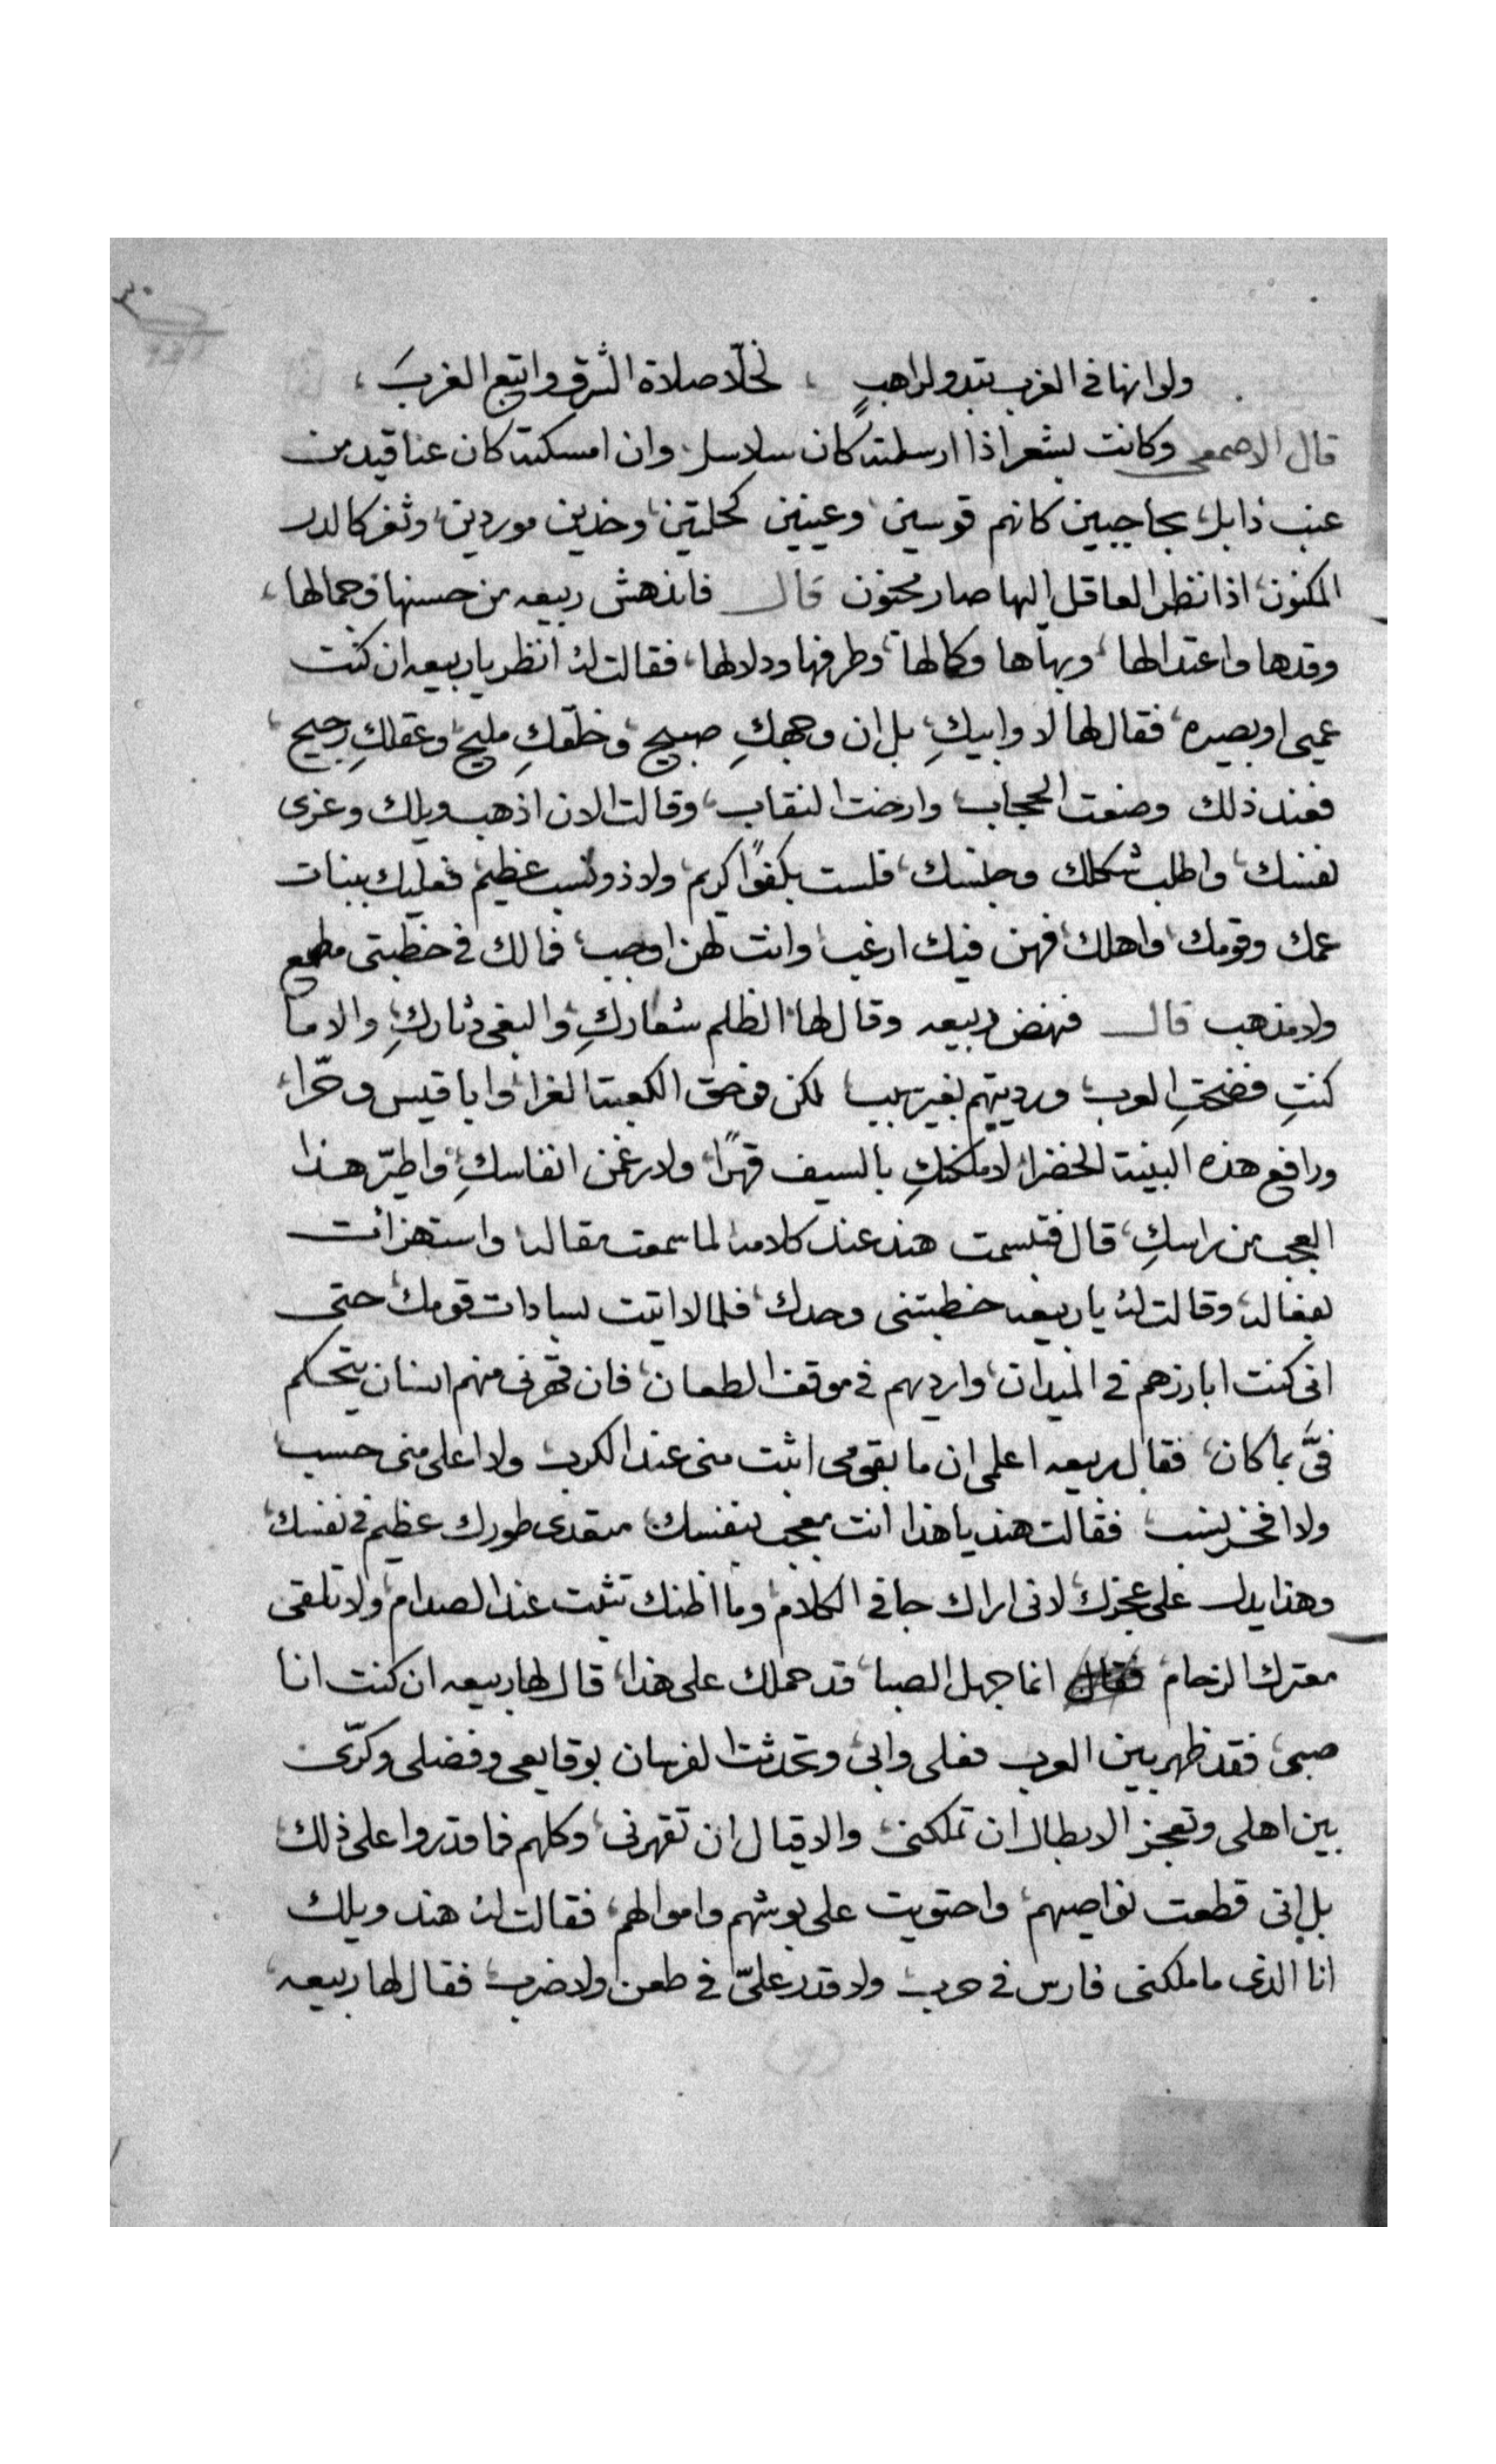 ولو انها في الغرب تبدو لراهبٍ ، لخلّا صلاة الشرق واتبع الغربَ ،
قال الاصمعى وكانت بشعر اذا ارسلته كان سلاسل، وان امسكته كان عناقيد من
عنب ذابل، بحاجبين كانهم قوسين، وعينين كحلتين، وخدين موردين، وثغر كالدر
المكنون، اذا نظر العاقل اليها صار مجنون قال فاندهش ربيعه من حسنها وجمالها،
وقدها واعتدالها، وبهاها وكمالها، وطرفها ودلالها، فقالت له انظر يا ربيعه ان كنت
عميى او بصيره، فقال لها لا وابيكِ، بل ان وجهكِ صبيح، وخلقكِ مليح، وعقلكِ رجيح،
فعند ذلك وضعت الحجاب، وارخت النقاب، وقالت الان اذهب ويلك وعزى
نفسك، واطلب شكلك وجنسك، فلست بكفوًا كريم، ولا ذو نسب عظيم فعليك ببنات
عمك وقومك، واهلك، فهن فيك ارغب، وانت لهن اوجب، فمالك في خطبتى مطمع
ولا مذهب قال فنهض ربيعه وقال لها، الظلم شعاركِ، والبغى دثاركِ، والا ما
كنتِ فضحتِ العرب، ورديتهم بغير سبب لكن وحق الكعبة الغرا، وابا قيس وحرا،
ورافع هذه البنية الخضرا، لاملكنكِ بالسيف قهرًا، ولارغمن انفاسكِ، واطيّر هذا
العجب من راسكِ، قال فتبسمت هند عند كلامه لما سمعت مقاله واستهزائت
بفعاله، وقالت له يا ربيعه خطبتنى وحدك، فلما لا اتيت بسادات قومك، حتى
انى كنت ابارزهم في الميدان، وارديهم في موقف الطعان، فان قهرنى منهم انسان يتحكم
فىَّ بما كان، فقال ربيعه اعلمى ان ما بقومى اثبت منى عند الكرب، ولا اعلى منى حسب
ولا افخر نسب، فقالت هند يا هذا انت معجب بنفسك، متعدى طورك، عظيم في نفسك،
وهذا يدل على عجزك، لانى اراك جافى الكلام، وما اظنك تثبت عند الصدام، ولا تلقى
معترك الزحام، انما جهل الصبا، قد حملك على هذا، قال لها ربيعه ان كنت انا
صبى، فقد ظهر بين العرب فعلى وابى، وتحدثت الفرسان بوقايعى وفضلى وكرّى
بين اهلى وتعجز الابطال ان تملكنى، والاقيال ان تقهرنى، وكلهم فما قدروا على ذلك،
بل انى قطعت نواصيهم، واحتويت على بوشهم واموالهم، فقالت له هند ويلك
انا الذى ما ملكنى فارس في حرب، ولا قدر علىّ في طعن ولا ضرب، فقال لها ربيعه،